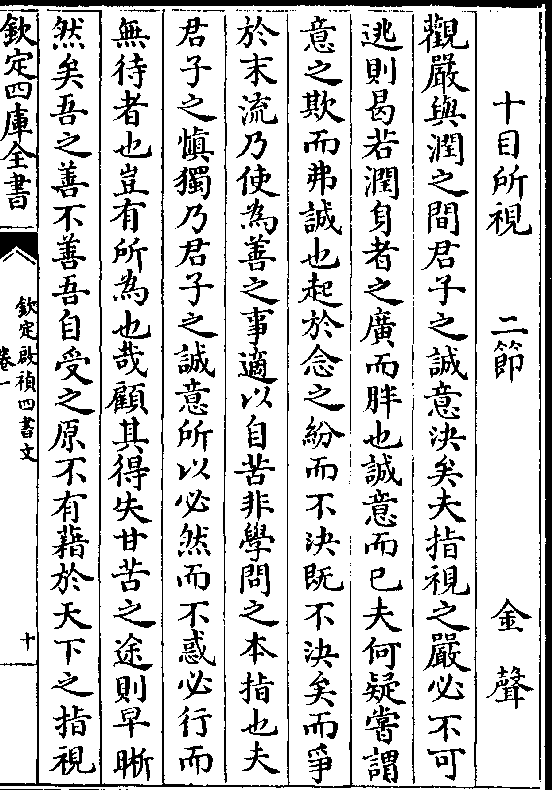 十目所視　二節　金聲
觀嚴與潤之間君子之誠意決矣夫指視之嚴必不可
逃則曷若潤身者之廣而胖也誠意而已夫何疑嘗謂
意之欺而弗誠也起於念之紛而不決既不決矣而爭
於末流乃使為善之事適以自苦非學問之本指也夫
君子之慎獨乃君子之誠意所以必然而不惑必行而
無待者也豈有所為也哉顧其得失甘苦之途則早晰
然矣吾之善不善吾自受之原不有藉於天下之指視
欽定四庫全書
欽定啟禎四書文
卷一
十